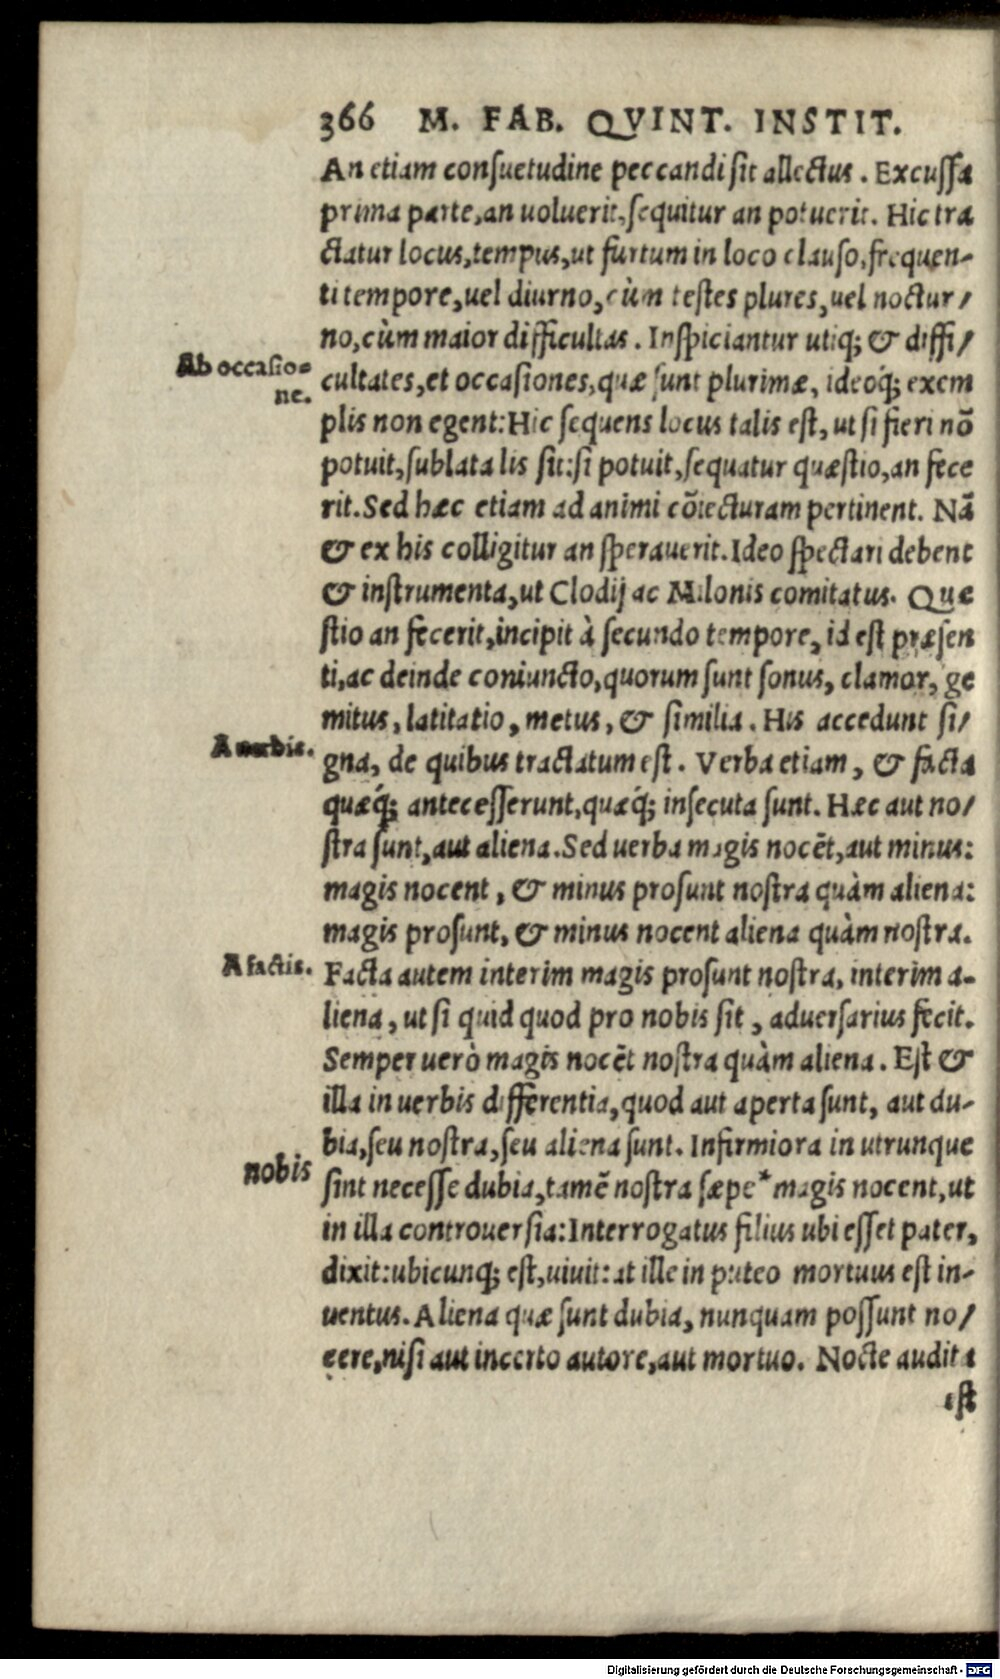 366 M. FAB. QVINT. INSTIT.
An etiam conſuetudine peccandi ſit allectus. Excuſſa
prima parte, an uoluerit, ſequitur an potuerit. Hic tra
ctatur locus, tempus, ut furtum in loco clauſo, frequen-
ti tempore, uel diurno, cùm teſtes plures, uel noctur/
no, cùm maior difficultas. Inſpiciantur utiq; & diffi/
Ab occaſio=
ne.
cultates, et occaſiones, quæ ſunt plurimæ, ideoq́; exem
plis non egent: Hic ſequens locus talis eſt, ut ſi fieri nõ
potuit, ſublata lis ſit: ſi potuit, ſequatur quæſtio, an fece
rit. Sed hæc etiam ad animi cõiecturam pertinent. Nã
& ex his colligitur an ſperauerit. Ideo ſpectari debent
& inſtrumenta, ut Clodij ac Milonis comitatus. Quæ
ſtio an fecerit, incipit à ſecundo tempore, id eſt præſen
ti, ac deinde coniuncto, quorum ſunt ſonus, clamor, ge
mitus, latitatio, metus, & ſimilia. His accedunt ſi/
A uerbis.
gna, de quibus tractatum eſt. Verba etiam, & facta
quæq́; anteceſſerunt, quæq́; inſecuta ſunt. Hæc aut no/
ſtra ſunt, aut aliena. Sed uerba magis nocẽt, aut minus:
magis nocent, & minus proſunt noſtra quàm aliena:
magis proſunt, & minus nocent aliena quàm noſtra.
A factis.
Facta autem interim magis proſunt noſtra, interim a-
liena, ut ſi quid quod pro nobis ſit, aduerſarius fecit.
Semper uerò magis nocẽt noſtra quàm aliena. Eſt &
illa in uerbis differentia, quod aut aperta ſunt, aut du-
bia, ſeu noſtra, ſeu aliena ſunt. Infirmiora in utrunque
nobis
ſint neceſſe dubia, tamẽ noſtra ſæpe* magis nocent, ut
in illa controuerſia: Interrogatus filius ubi eſſet pater,
dixit: ubicunq; eſt, uiuit: at ille in puteo mortuus eſt in-
uentus. Aliena quæ ſunt dubia, nunquam poſſunt no/
cere, niſi aut incerto autore, aut mortuo. Nocte audita
eſt
Digitalisierung gefördert durch die Deutsche Forschungsgemeinschaft - DFG